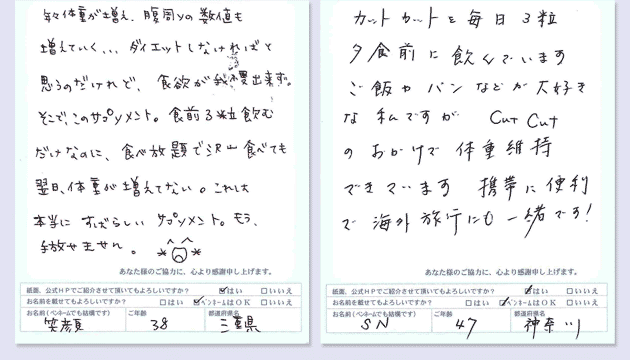 年々体重が増え、腹周りの数値も
増えていく... ダイエットしなければと
思うのだけれど、食欲が我慢出来ず。
そこで、このサプリメント。食前3粒飲む
だけなのに、食べ放題で沢山食べても
翌日、体重が増えてない。これは
本当にすばらしいサプリメント。もう、
手放せません。
あなた様のご協力に、心より感謝申し上げます。
紙面、公式HPでご紹介させて頂いてもよろしいですか? ☑はい □いいえ
お名前を載せてもよろしいですか? □はい ☑ペンネームはOK □いいえ
お名前(ペンネームでも結構です) ご年齢 都道府県名
笑顔 38 三重県
カットカットを毎日3粒
夕食前に飲んでいます
ご飯やパンなどが大好き
な私ですが Cut Cut
のおかげで体重維持
できています 携帯に便利
で海外旅行にも一緒です!
あなた様のご協力に、心より感謝申し上げます。
紙面、公式HPでご紹介させて頂いてもよろしいですか? ☑はい □いいえ
お名前を載せてもよろしいですか? □はい ☑ペンネームはOK □いいえ
お名前(ペンネームでも結構です) ご年齢 都道府県名
SN 47 神奈川